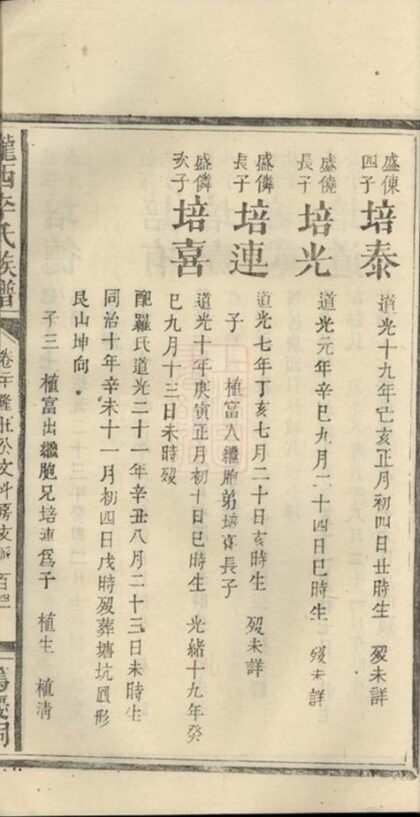 盛倲四子 培泰 道光十九年亡亥正月初四日丑時生 歿未詳
盛僥長子 培光 道光元年辛巳九月二十四日巳時生 歿未詳
盛僯長子 培連 道光七年丁亥七月二十日亥時生 歿未詳
子 植富入繼胞弟培喜長子
盛僯次子 培喜 道光十年庚寅正月初十日巳時生 光緒十九年癸
巳九月十三日未時歿
配羅氏道光二十一年辛丑八月二十三日未時生
同治十年辛未十一月初四日戌時歿葬塘坑圓形
艮山坤向
子三 植富出繼胞兄培連爲子 植生 植淸
隴西李氏族譜 卷 隆 公文科房支